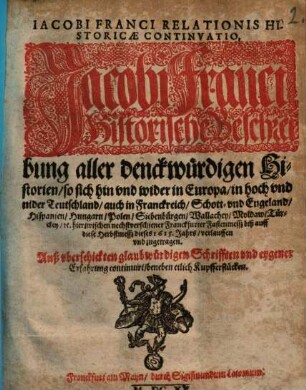 2
IACOBI FRANCI RELATIONIS HI-
STORICÆ CONTINVATIO,
Jacobi Franci
Historische Beschrei
bung aller denckwürdigen Hi-
storien/so sich hin vnd wider in Europa/in hoch vnd
nider Teutschland/auch in Franckreich/Schott- vnd Engeland/
Hispanien/Hungarn/Polen/Siebenbürgen/Wallachey/Moldaw/Tür-
ckey/ rc. hiezwischen nechstverschiener Franckfurter Fastenmeß biß auff
diese Herbstmeß dieses 1615. Jahrs/verlauffen
vnd zugetragen.
Auß vberschickten glaubwürdigen Schrifften vnd eygener
Erfahrung continuirt/beneben etlich Kupfferstücken.
Franckfurt am Mayn/ durch Sigismundum Latomum.